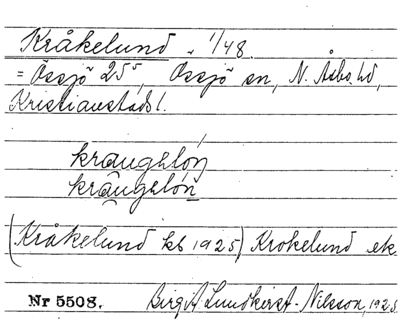 Kråkelund 1/48.
= Össjö 25⁵, Össjö sn, N. Åsbo hd,
Kristianstads l.
(Kråkelund kb 1925) Krokelund ek.
Nr 5508. Birgit Lundkvist-Nilsson, 1925